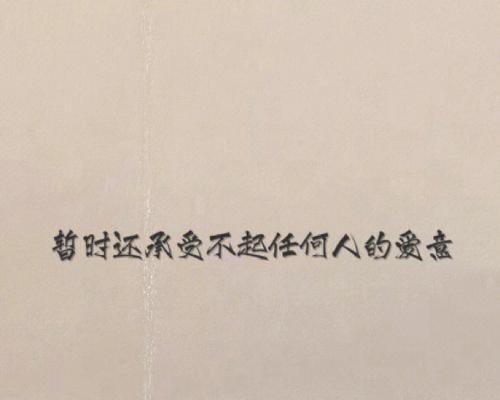 暂时还承受不起任何人的爱意